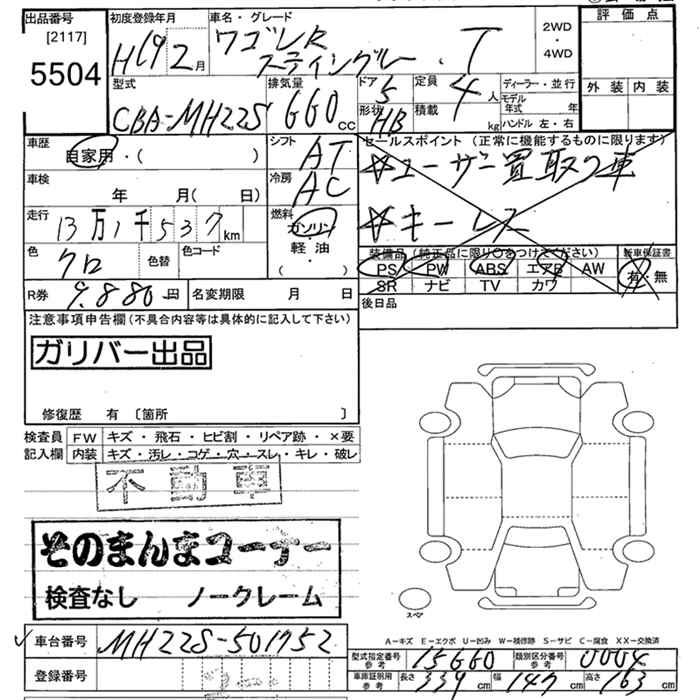 出品番号 [2117] 5504
初度登録年月 H19 2月
車名・グレード ワゴンR スティングレー・T
2WD・4WD
評価点
型式 CBA-MH22S
排気量 660cc
ドア 5
形状 HB
定員 4人
積載 kg
ディーラー・並行
モデル年式 年
ハンドル 左・右
外装 内装
車歴 自家用・( )
シフト AT
セールスポイント (正常に機能するものに限ります)
☆ユーザー買取り車
☆キーレス
車検 年 月(日)
冷房 AC
走行 13万1千537km
燃料 ガソリン 軽・油 ( ・ )
色 クロ 色替 色コード
装備品 (純正品に限り○をつけてください) 新車保証書
PS PW ABS エアB AW 有・無
SR ナビ TV カワ
R券 9,880円 名変期限 月 日
後日品
注意事項申告欄(不具合内容等は具体的に記入して下さい)
ガリバー出品
修復歴 有 〔箇所 〕
検査員 FW キズ・飛石・ヒビ割・リペア跡・×要
記入欄 内装 キズ・汚レ・コゲ・穴・スレ・キレ・破レ
不動車
そのまんまコーナー
検査なし ノークレーム
スペア
A-キズ E-エクボ U-凹み W-補修跡 S-サビ C-腐食 XX-交換済
車台番号 MH22S-501752
型式指定番号 参考 15660 類別区分番号 参考 0004
登録番号
車庫証明用 参考 長さ 339cm 幅 147cm 高さ 163cm